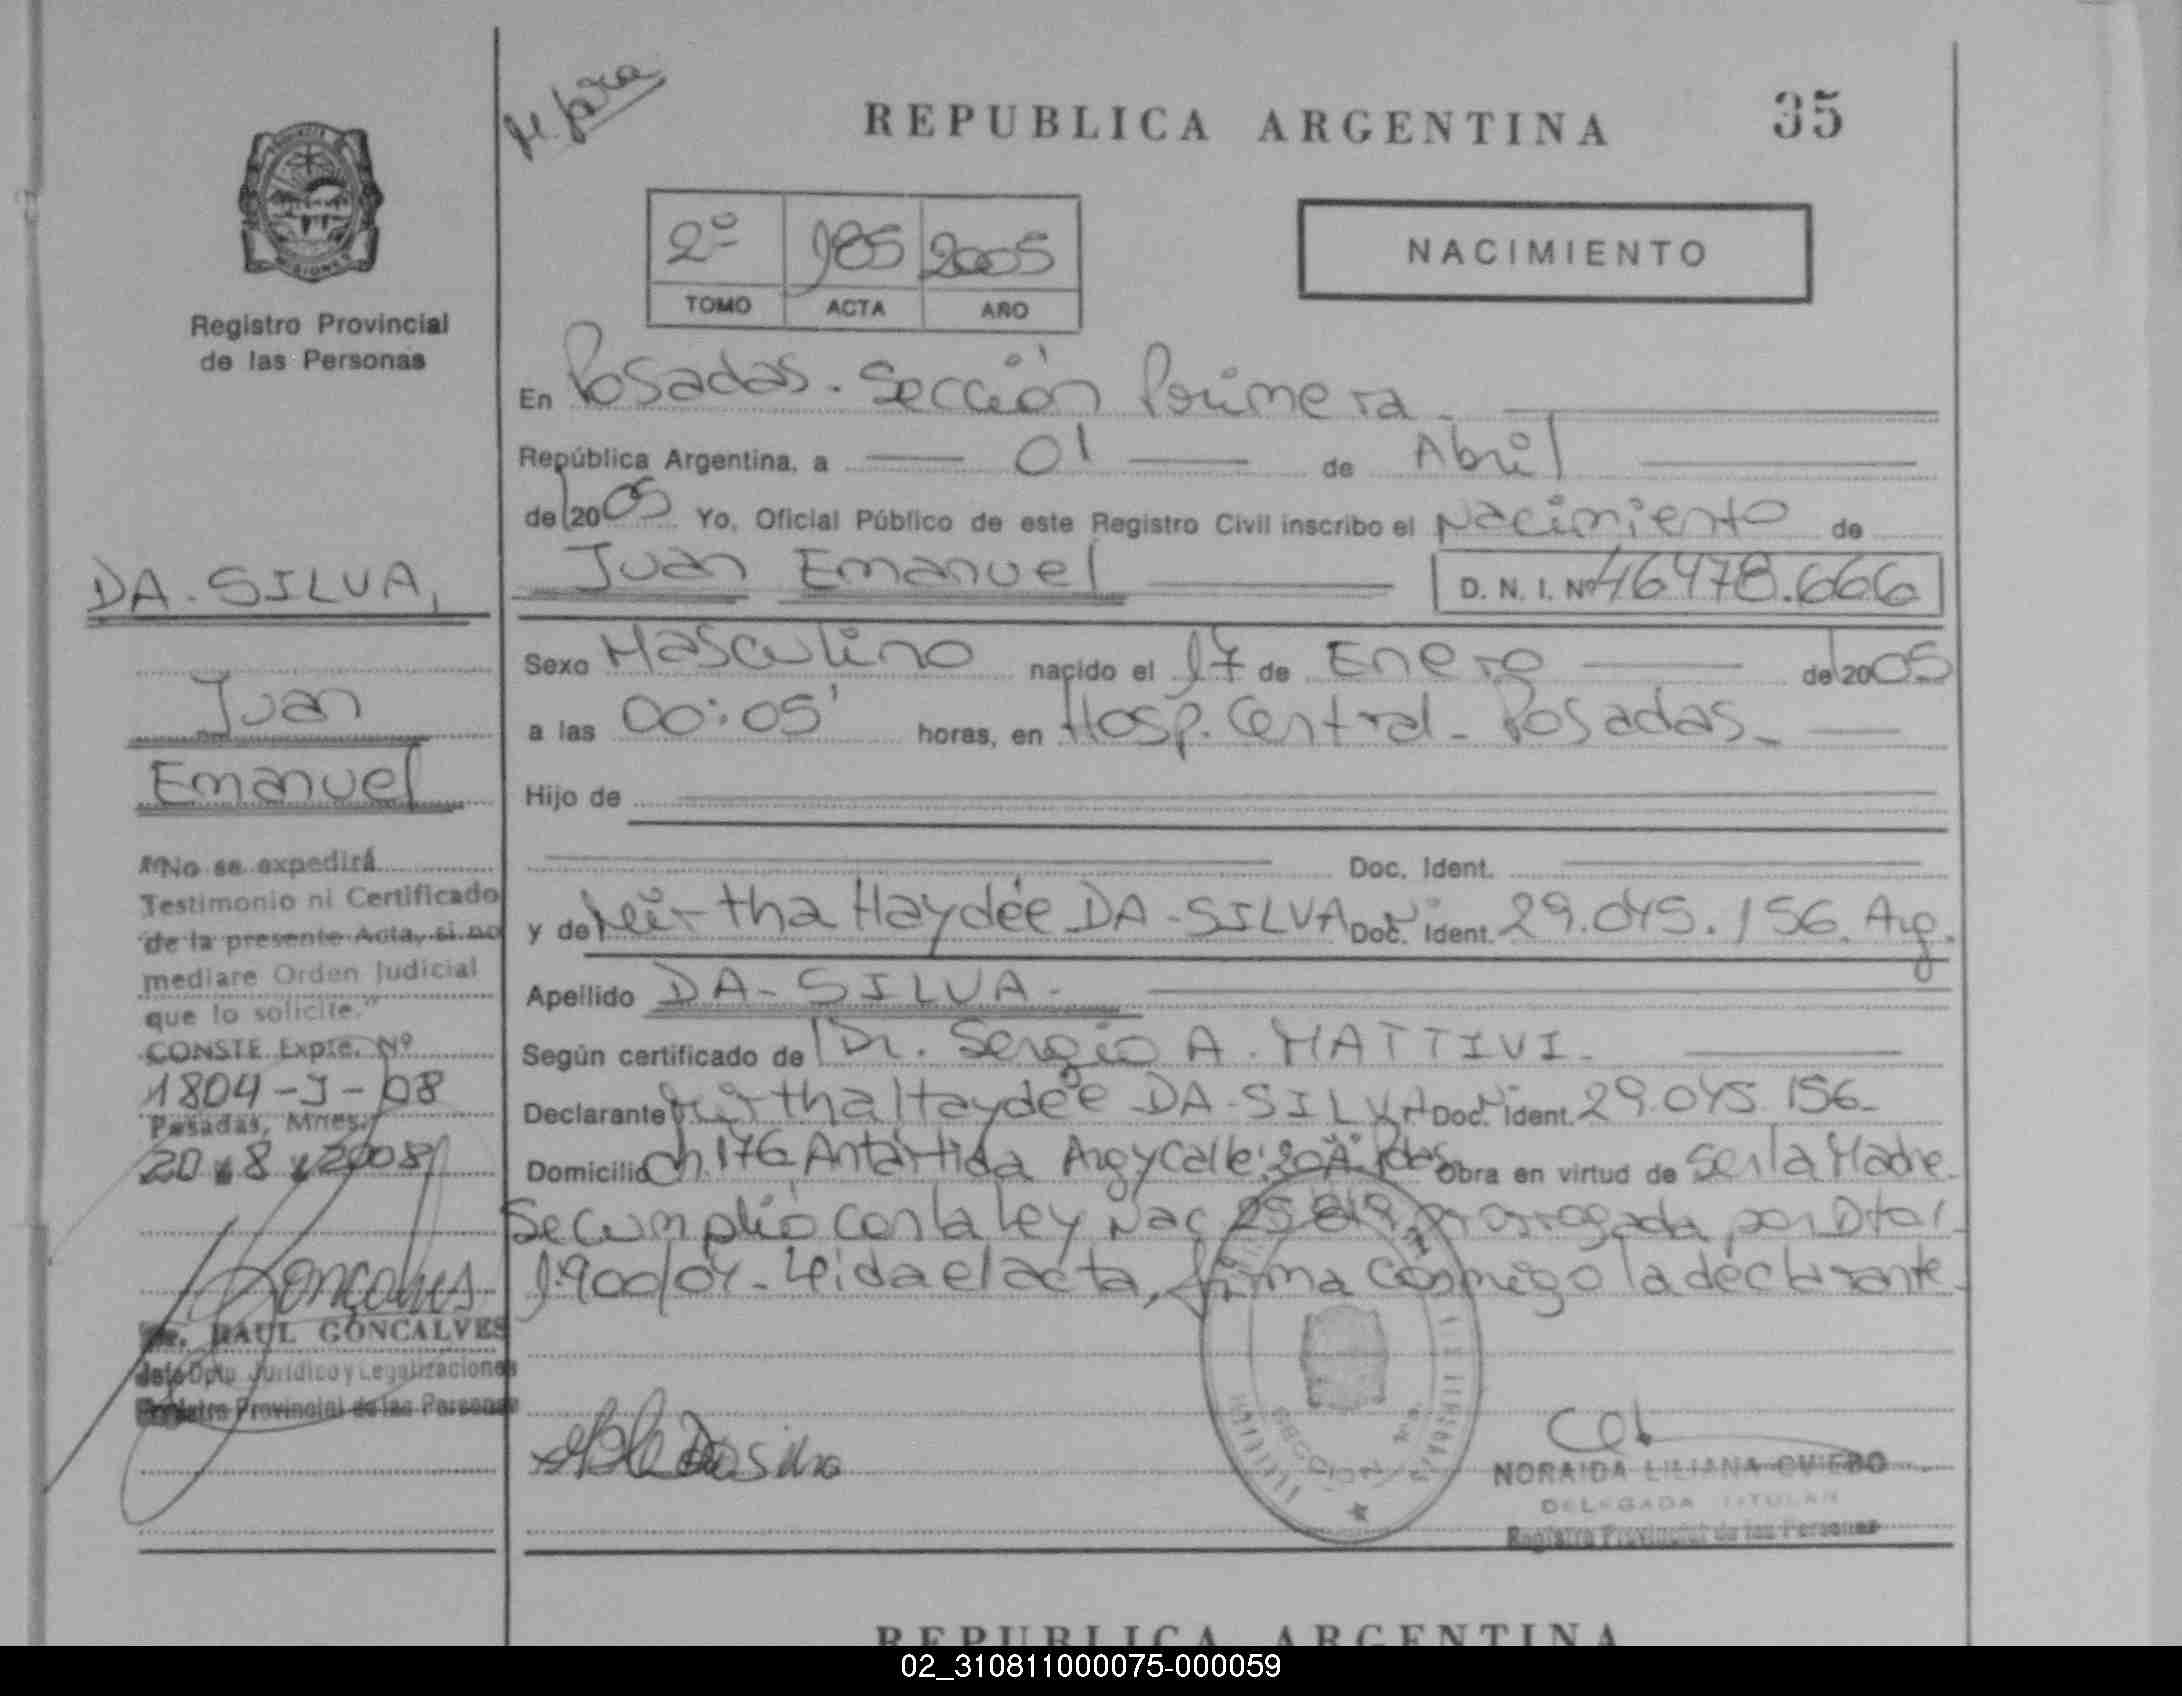 REPUBLICA ARGENTINA
35
2º 185 2005
TOMO ACTA AÑO
NACIMIENTO
Registro Provincial
de las Personas
En Posadas. Sección Primera.
República Argentina, a 01 de Abril
de 2005 Yo, Oficial Público de este Registro Civil inscribo el Nacimiento de
Juan Emanuel D. N. I. Nº 46478.666
Sexo Masculino nacido el 17 de Enero de 2005
a las 00:05' horas, en Hosp. Central - Posadas -
Hijo de
Doc. Ident.
y de Mirtha Haydée DA-SILVA Doc. Ident. 29.045.156. Arg.
Apellido DA-SILVA-
Según certificado de Dr. Sergio A. MATTIVI.
Declarante Mirtha Haydée DA-SILVA Doc. Ident. 29.045.156-
Domicilio Ch. 176 Antártida Arg y Calle Obra en virtud de Ser la Madre.
Se cumplió con la ley Nac 25.819 prorrogada por Dto.
1.900/04- Leida el acta, firma conmigo la declarante.
Da Silva
NORAIDA LILIANA OVIEDO
DELEGADA TITULAR
Registro Provincial de las Personas
DA-SILVA,
Juan
Emanuel
"No se expedirá
Testimonio ni Certificado
de la presente Acta, si no
mediare Orden Judicial
que lo solicite."
CONSTE Expte. Nº
1804-J-08
Posadas, Mnes.
20.8.2008
Goncalves
Dr. RAUL GONCALVES
Jefe Dpto. Jurídico y Legalizaciones
Registro Provincial de las Personas
REPUBLICA ARGENTINA
02_310811000075-000059